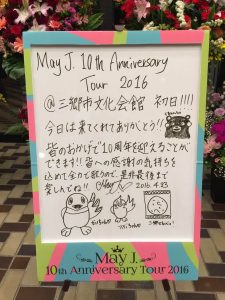 May J. 10th Anniversary
Tour 2016
@三郷市文化会館 初日!!!!
今日は来てくれてありがとう!!
皆のおかげで10周年を迎えることが
できます!! 皆への感謝の気持ちを
込めて全力で歌うので是非最後まで
楽しんでね!!
2016.4.23
May J.
10th Anniversary Tour 2016